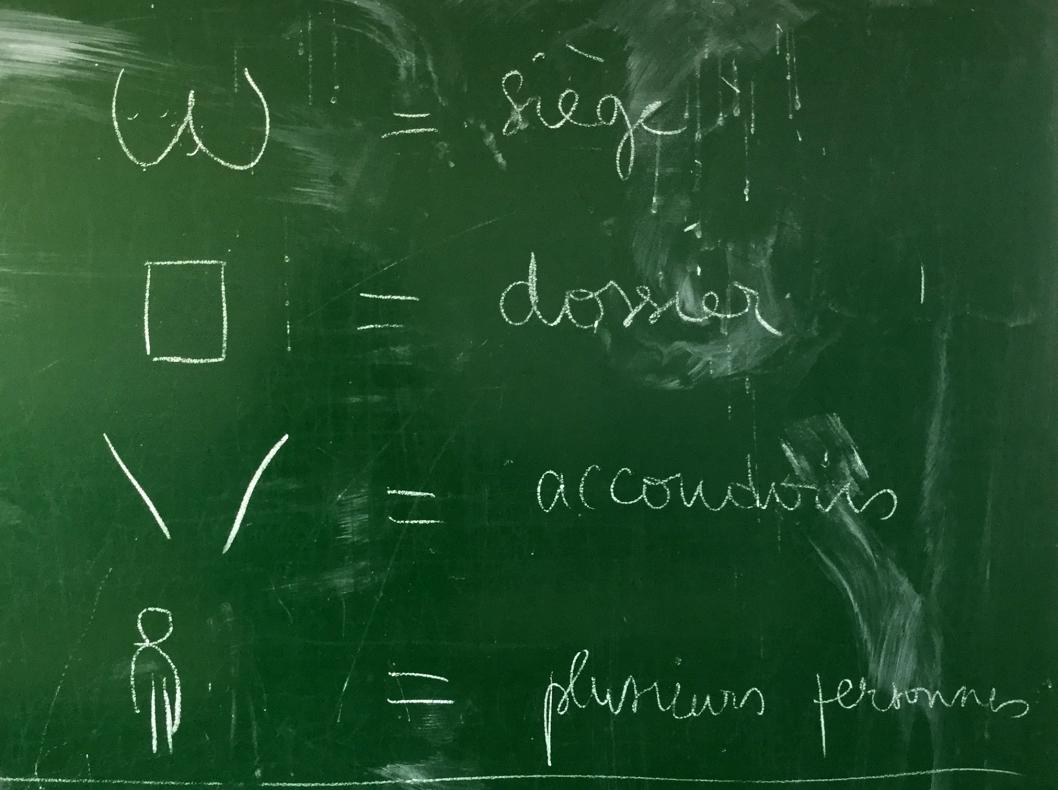 = siège
= dossier
= accoudoirs
= plusieurs personnes